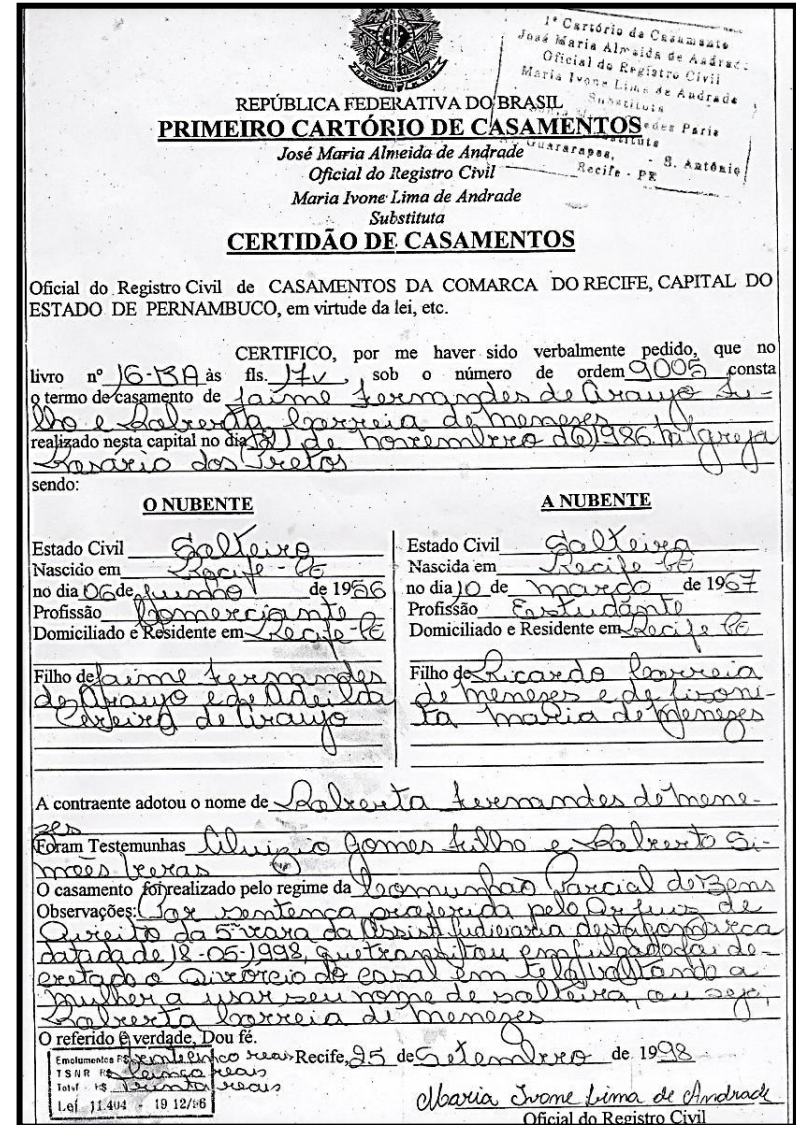 1º Cartório de Casamento
José Maria Almeida de Andrade
Oficial do Registro Civil
Maria Ivone Lima de Andrade
Substituta
Paria
Substituta
Guararapes, - S. Antônio
Recife - PE
REPÚBLICA FEDERATIVA DO BRASIL
PRIMEIRO CARTÓRIO DE CASAMENTOS
José Maria Almeida de Andrade
Oficial do Registro Civil
Maria Ivone Lima de Andrade
Substituta
CERTIDÃO DE CASAMENTOS
Oficial do Registro Civil de CASAMENTOS DA COMARCA DO RECIFE, CAPITAL DO
ESTADO DE PERNAMBUCO, em virtude da lei, etc.
CERTIFICO, por me haver sido verbalmente pedido, que no
livro nº 16-BA às fls. 17v, sob o número de ordem 9005 consta
o termo de casamento de Jaime Fernandes de Araujo Fi-
lho e Roberta Correia de Meneses
realizado nesta capital no dia 21 de novembro de 1986 na Igreja
Rosário dos Pretos
sendo:
O NUBENTE
Estado Civil Solteiro
Nascido em Recife - PE
no dia 06 de Junho de 1956
Profissão Comerciante
Domiciliado e Residente em Recife-PE
Filho de Jaime Fernandes
de Araujo e de Adeilda
Pereira de Araujo
A NUBENTE
Estado Civil Solteira
Nascida em Recife PE
no dia 10 de março de 1967
Profissão Estudante
Domiciliado e Residente em Recife PE
Filho de Ricardo Correia
de Meneses e de
Maria de Meneses
A contraente adotou o nome de Roberta Fernandes de Mene-
zes
Foram Testemunhas Aluizio Gomes Filho e Roberto Si-
mões Veras
O casamento foi realizado pelo regime da Comunhão Parcial de Bens
Observações: Por sentença proferida pelo Dr Juiz de
Direito da 5ª vara da Assist Judiciaria desta Comarca
datada de 18-05-1998, que transitou em julgado foi de-
cretado o Divórcio do casal em tela, voltando a
mulher a usar seu nome de solteira, ou seja,
Roberta Correia de Meneses
O referido é verdade, Dou fé.
Recife, 25 de Setembro de 1998
Emolumentos R$ vinte cinco reais
TSNR R$ cinco reais
Total R$ trinta reais
Lei 11.404 - 19 12/96
Maria Ivone Lima de Andrade
Oficial do Registro Civil